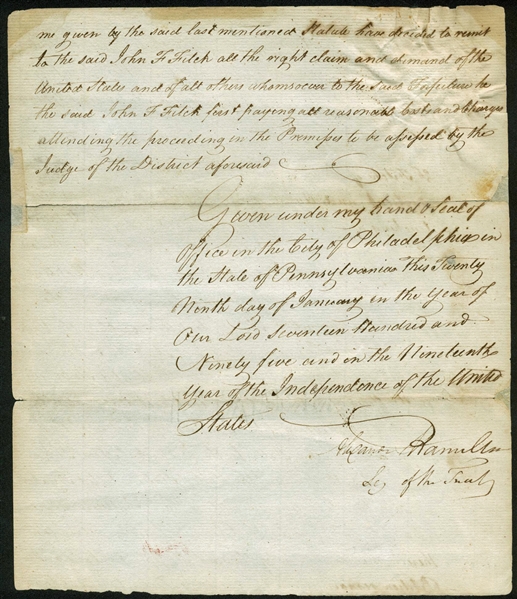 me given by the said last mentioned Statute have decided to remit
to the said John F Fitch all the right claim and demand of the
United States and of all others whomsoever to the said Forfeiture he
the said John F Fitch first paying all reasonable Costs and Charges
attending the proceeding in the Premises to be assessed by the
Judge of the District aforesaid
Given under my hand & Seal of
Office in the City of Philadelphia in
the State of Pennsylvania This Twenty
Ninth day of January in the Year of
Our Lord Seventeen Hundred and
Ninety five and in the Nineteenth
Year of the Independence of the United
States
Alexander Hamilton
Sey of the Treasy